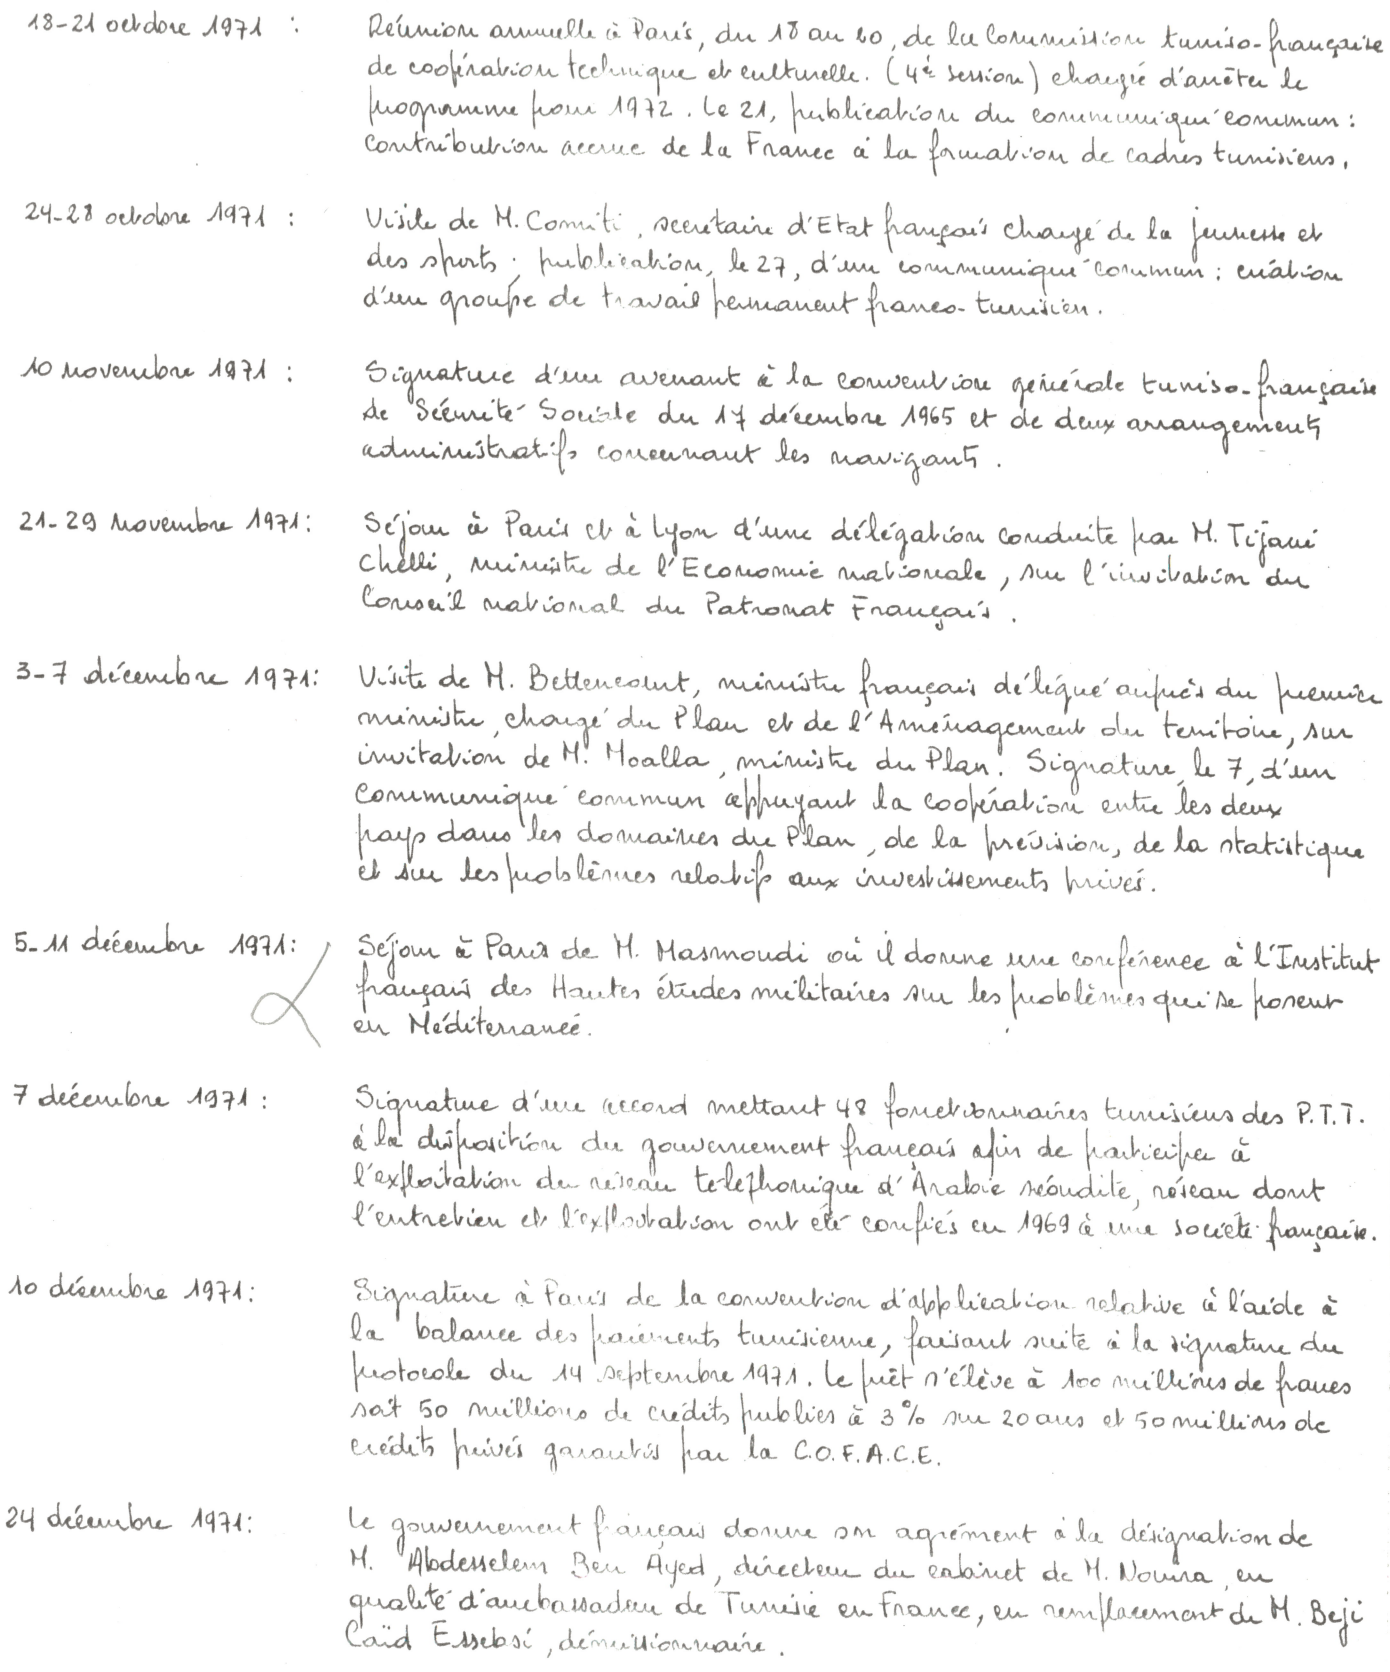 18-21 octobre 1971 : Réunion annuelle à Paris, du 18 au 20, de la Commission tuniso-française
de coopération technique et culturelle. (4è session) chargée d'arrêter le
programme pour 1972. Le 21, publication du communiqué commun :
Contribution accrue de la France à la formation de cadres tunisiens.
24-28 octobre 1971 : Visite de M. Comiti, secrétaire d'Etat français chargé de la jeunesse et
des sports ; publication, le 27, d'un communiqué commun : création
d'un groupe de travail permanent franco-tunisien.
10 novembre 1971 : Signature d'un avenant à la convention générale tuniso-française
de Sécurité Sociale du 17 décembre 1965 et de deux arrangements
administratifs concernant les navigants.
21-29 novembre 1971 : Séjour à Paris et à Lyon d'une délégation conduite par M. Tijani
Chelli, ministre de l'Economie nationale, sur l'invitation du
Conseil national du Patronat Français.
3-7 décembre 1971 : Visite de M. Bettencourt, ministre français délégué auprès du premier
ministre, chargé du Plan et de l'Aménagement du territoire, sur
invitation de M. Moalla, ministre du Plan. Signature, le 7, d'un
communiqué commun appuyant la coopération entre les deux
pays dans les domaines du Plan, de la prévision, de la statistique
et sur les problèmes relatifs aux investissements privés.
5-11 décembre 1971 : Séjour à Paris de M. Masmoudi où il donne une conférence à l'Institut
français des Hautes études militaires sur les problèmes qui se posent
en Méditerranée.
7 décembre 1971 : Signature d'un accord mettant 48 fonctionnaires tunisiens des P.T.T.
à la disposition du gouvernement français afin de participer à
l'exploitation du réseau téléphonique d'Arabie séoudite, réseau dont
l'entretien et l'exploitation ont été confiés en 1969 à une société française.
10 décembre 1971 : Signature à Paris de la convention d'application relative à l'aide à
la balance des paiements tunisienne, faisant suite à la signature du
protocole du 14 septembre 1971. Le prêt s'élève à 100 millions de francs
soit 50 millions de crédits publics à 3% sur 20 ans et 50 millions de
crédits privés garantis par la C.O.F.A.C.E.
24 décembre 1971 : Le gouvernement français donne son agrément à la désignation de
M. Abdesselem Ben Ayed, directeur du cabinet de M. Nouira, en
qualité d'ambassadeur de Tunisie en France, en remplacement de M. Beji
Caïd Essebsi, démissionnaire.